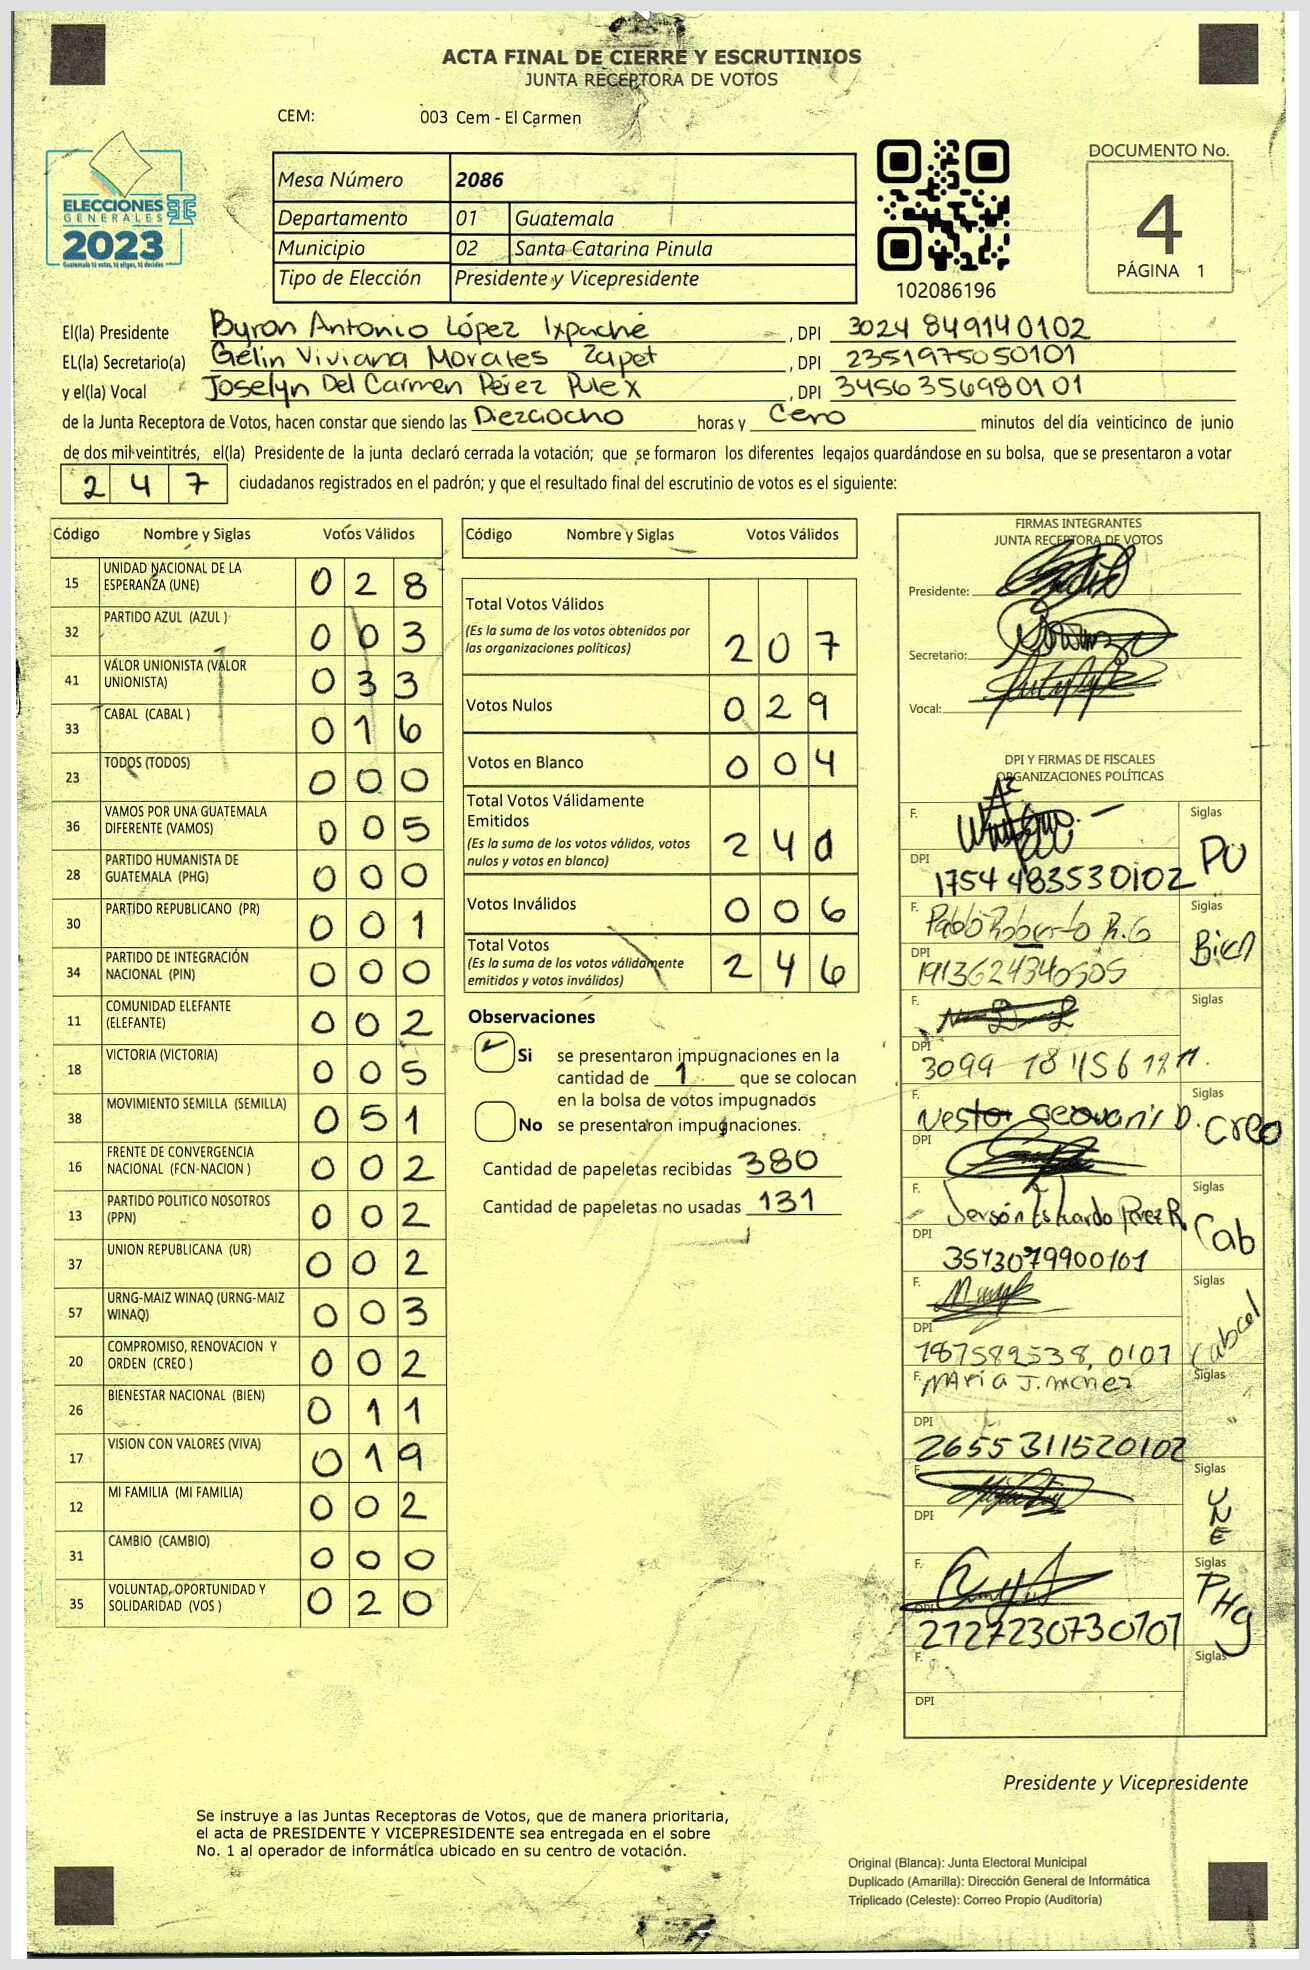 ACTA FINAL DE CIERRE Y ESCRUTINIOS
JUNTA RECEPTORA DE VOTOS
CEM: 003 Cem - El Carmen
ELECCIONES
GENERALES
2023
Guatemala tú votas, tú eliges, tú decides
Mesa Número 2086
Departamento 01 Guatemala
Municipio 02 Santa Catarina Pinula
Tipo de Elección Presidente y Vicepresidente
102086196
DOCUMENTO No.
4
PÁGINA 1
El(la) Presidente Byron Antonio López Ixpaché , DPI 3024 849140102
EL(la) Secretario(a) Gelin Viviana Morales Zapet , DPI 2351975050101
y el(la) Vocal Joselyn Del Carmen Pérez Pulex , DPI 3456356980101
de la Junta Receptora de Votos, hacen constar que siendo las Dieciocho horas y Cero minutos del día veinticinco de junio
de dos mil veintitrés, el(la) Presidente de la junta declaró cerrada la votación; que se formaron los diferentes legajos quardándose en su bolsa, que se presentaron a votar
2 4 7 ciudadanos registrados en el padrón; y que el resultado final del escrutinio de votos es el siguiente:
Código Nombre y Siglas Votos Válidos
15 UNIDAD NACIONAL DE LA ESPERANZA (UNE) 0 2 8
32 PARTIDO AZUL (AZUL ) 0 0 3
41 VALOR UNIONISTA (VALOR UNIONISTA) 0 3 3
33 CABAL (CABAL ) 0 1 6
23 TODOS (TODOS) 0 0 0
36 VAMOS POR UNA GUATEMALA DIFERENTE (VAMOS) 0 0 5
28 PARTIDO HUMANISTA DE GUATEMALA (PHG) 0 0 0
30 PARTIDO REPUBLICANO (PR) 0 0 1
34 PARTIDO DE INTEGRACIÓN NACIONAL (PIN) 0 0 0
11 COMUNIDAD ELEFANTE (ELEFANTE) 0 0 2
18 VICTORIA (VICTORIA) 0 0 5
38 MOVIMIENTO SEMILLA (SEMILLA) 0 5 1
16 FRENTE DE CONVERGENCIA NACIONAL (FCN-NACION ) 0 0 2
13 PARTIDO POLITICO NOSOTROS (PPN) 0 0 2
37 UNION REPUBLICANA (UR) 0 0 2
57 URNG-MAIZ WINAQ (URNG-MAIZ WINAQ) 0 0 3
20 COMPROMISO, RENOVACION Y ORDEN (CREO ) 0 0 2
26 BIENESTAR NACIONAL (BIEN) 0 1 1
17 VISION CON VALORES (VIVA) 0 1 9
12 MI FAMILIA (MI FAMILIA) 0 0 2
31 CAMBIO (CAMBIO) 0 0 0
35 VOLUNTAD, OPORTUNIDAD Y SOLIDARIDAD (VOS ) 0 2 0
Código Nombre y Siglas Votos Válidos
Total Votos Válidos 2 0 7
(Es la suma de los votos obtenidos por
las organizaciones políticas)
Votos Nulos 0 2 9
Votos en Blanco 0 0 4
Total Votos Válidamente
Emitidos 2 4 0
(Es la suma de los votos válidos, votos
nulos y votos en blanco)
Votos Inválidos 0 0 6
Total Votos 2 4 6
(Es la suma de los votos válidamente
emitidos y votos inválidos)
Observaciones
Si se presentaron impugnaciones en la
cantidad de 1 que se colocan
en la bolsa de votos impugnados
No se presentaron impugnaciones.
Cantidad de papeletas recibidas 380
Cantidad de papeletas no usadas 131
FIRMAS INTEGRANTES
JUNTA RECEPTORA DE VOTOS
Presidente:
Secretario:
Vocal:
DPI Y FIRMAS DE FISCALES
ORGANIZACIONES POLÍTICAS
F. Siglas PU
DPI 1754 483530102
F. Pablo Roberto R.G Siglas Bien
DPI 1913624340505
F. Siglas
DPI
F. Nestor Geovani D. Siglas Creo
DPI
F. Jersón Eduardo Perez R. Siglas Cab
DPI 3513079900101
F. Siglas Cabal
DPI 787589538, 0101
F. Maria Jimenez Siglas
DPI 2655311520102
F. Siglas UNE
DPI
F. Siglas PHg
DPI 2727230730101
F. Siglas
DPI
Presidente y Vicepresidente
Se instruye a las Juntas Receptoras de Votos, que de manera prioritaria,
el acta de PRESIDENTE Y VICEPRESIDENTE sea entregada en el sobre
No. 1 al operador de informática ubicado en su centro de votación.
Original (Blanca): Junta Electoral Municipal
Duplicado (Amarilla): Dirección General de Informática
Triplicado (Celeste): Correo Propio (Auditoría)